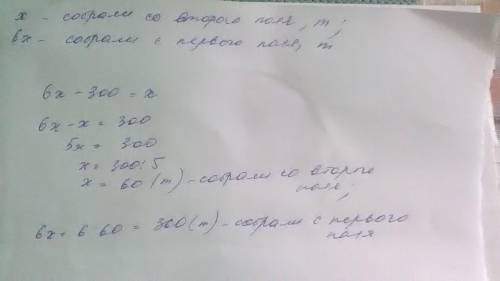 x - собрали со второго поля, т;
6x - собрали с первого поля, т
6x - 300 = x
6x - x = 300
5x = 300
x = 300:5
x = 60 (т) - собрали со второго
поля;
6x = 6·60 = 360 (т) - собрали с первого
поля